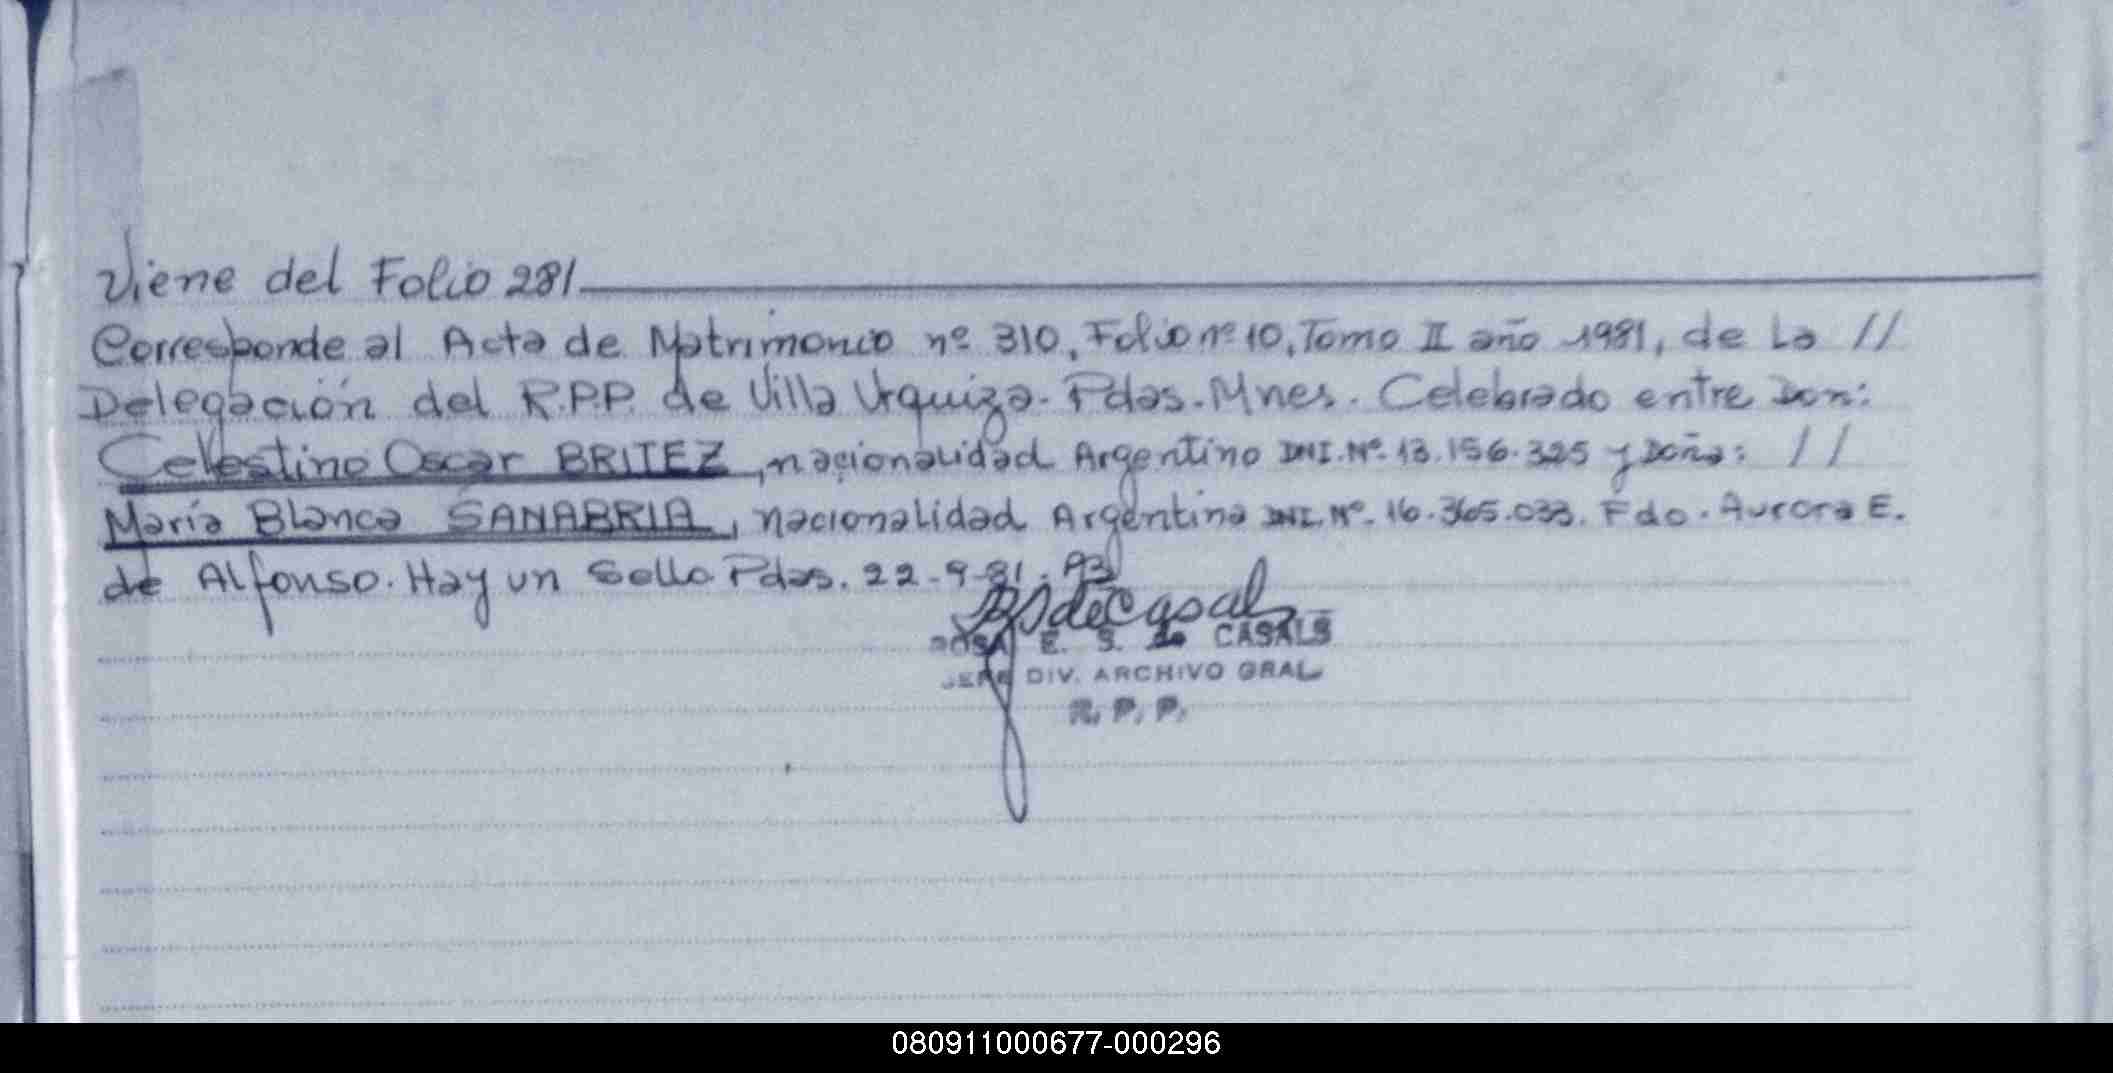 Viene del Folio 281
Corresponde al Acta de Matrimonio nº 310, Folio nº 10, Tomo II año 1981, de La //
Delegación del R.P.P. de Villa Urquiza. Pdas. Mnes. Celebrado entre Don:
Celestino Oscar BRITEZ, nacionalidad Argentino DNI. Nº. 13.156.325 y Doña: //
María Blanca SANABRIA, nacionalidad Argentina DNI. Nº. 16.365.033. Fdo. Aurora E.
de Alfonso. Hay un Sello Pdas. 22-9-81.
ROSA E. S. de CASALS
JEFE DIV. ARCHIVO GRAL
R. P. P.
080911000677-000296